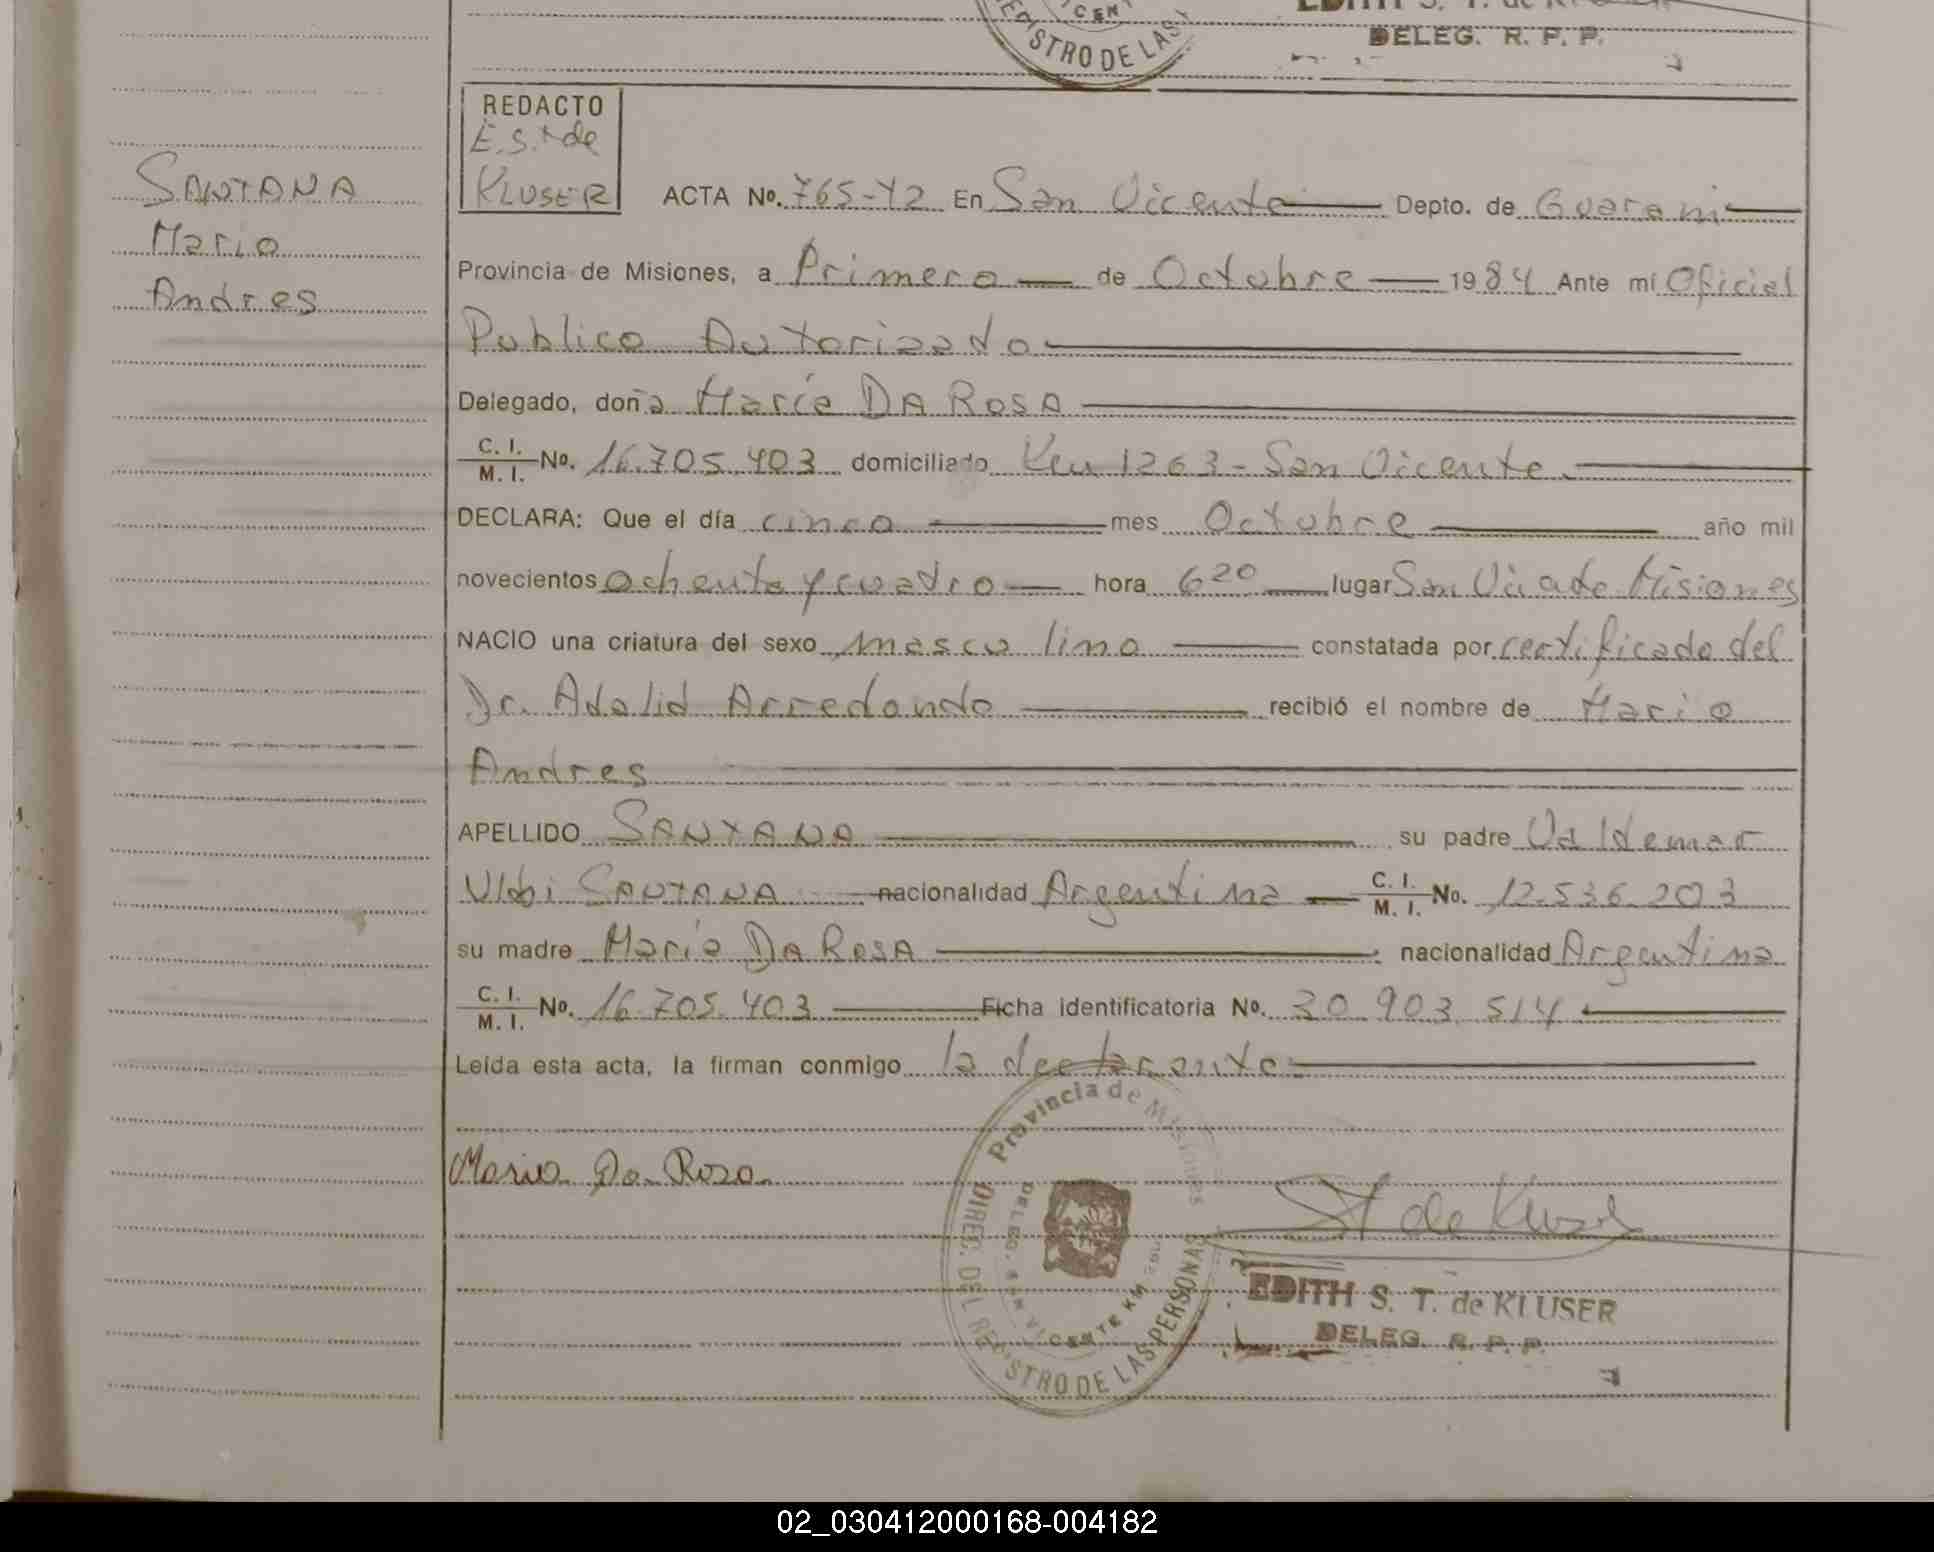 CEN
REGISTRO DE LAS
DELEG. R. P. P.
REDACTO
E.S.T de
KLUSER
SANTANA
Mario
Andres
ACTA No. 765-Y2 En San Vicente Depto. de Guarani
Provincia de Misiones, a Primero de Octubre 1984 Ante mí Oficial
Publico Autorizado
Delegado, doña María DA ROSA
C. I. / M. I. No. 16.705.403 domiciliado Km 1263 - San Vicente
DECLARA: Que el día cinco mes Octubre año mil
novecientos ochenta y cuatro hora 6 20 lugar San Vicente Misiones
NACIO una criatura del sexo masculino constatada por certificado del
Dr. Adalid Arredondo recibió el nombre de Mario
Andres
APELLIDO SANTANA su padre Valdemar
Uldi SANTANA nacionalidad Argentina C. I. / M. I. No. 12.536.203
su madre María DA ROSA nacionalidad Argentina
C. I. / M. I. No. 16.705.403 Ficha identificatoria No. 30.903.514
Leída esta acta, la firman conmigo la declarante
Provincia de Misiones
DIREC. DEL REGISTRO DE LAS PERSONAS
DELEG. SAN VICENTE KM
Maria Da Rosa
ST de Kluser
EDITH S. T. de KLUSER
DELEG. R. P. P.
02_030412000168-004182